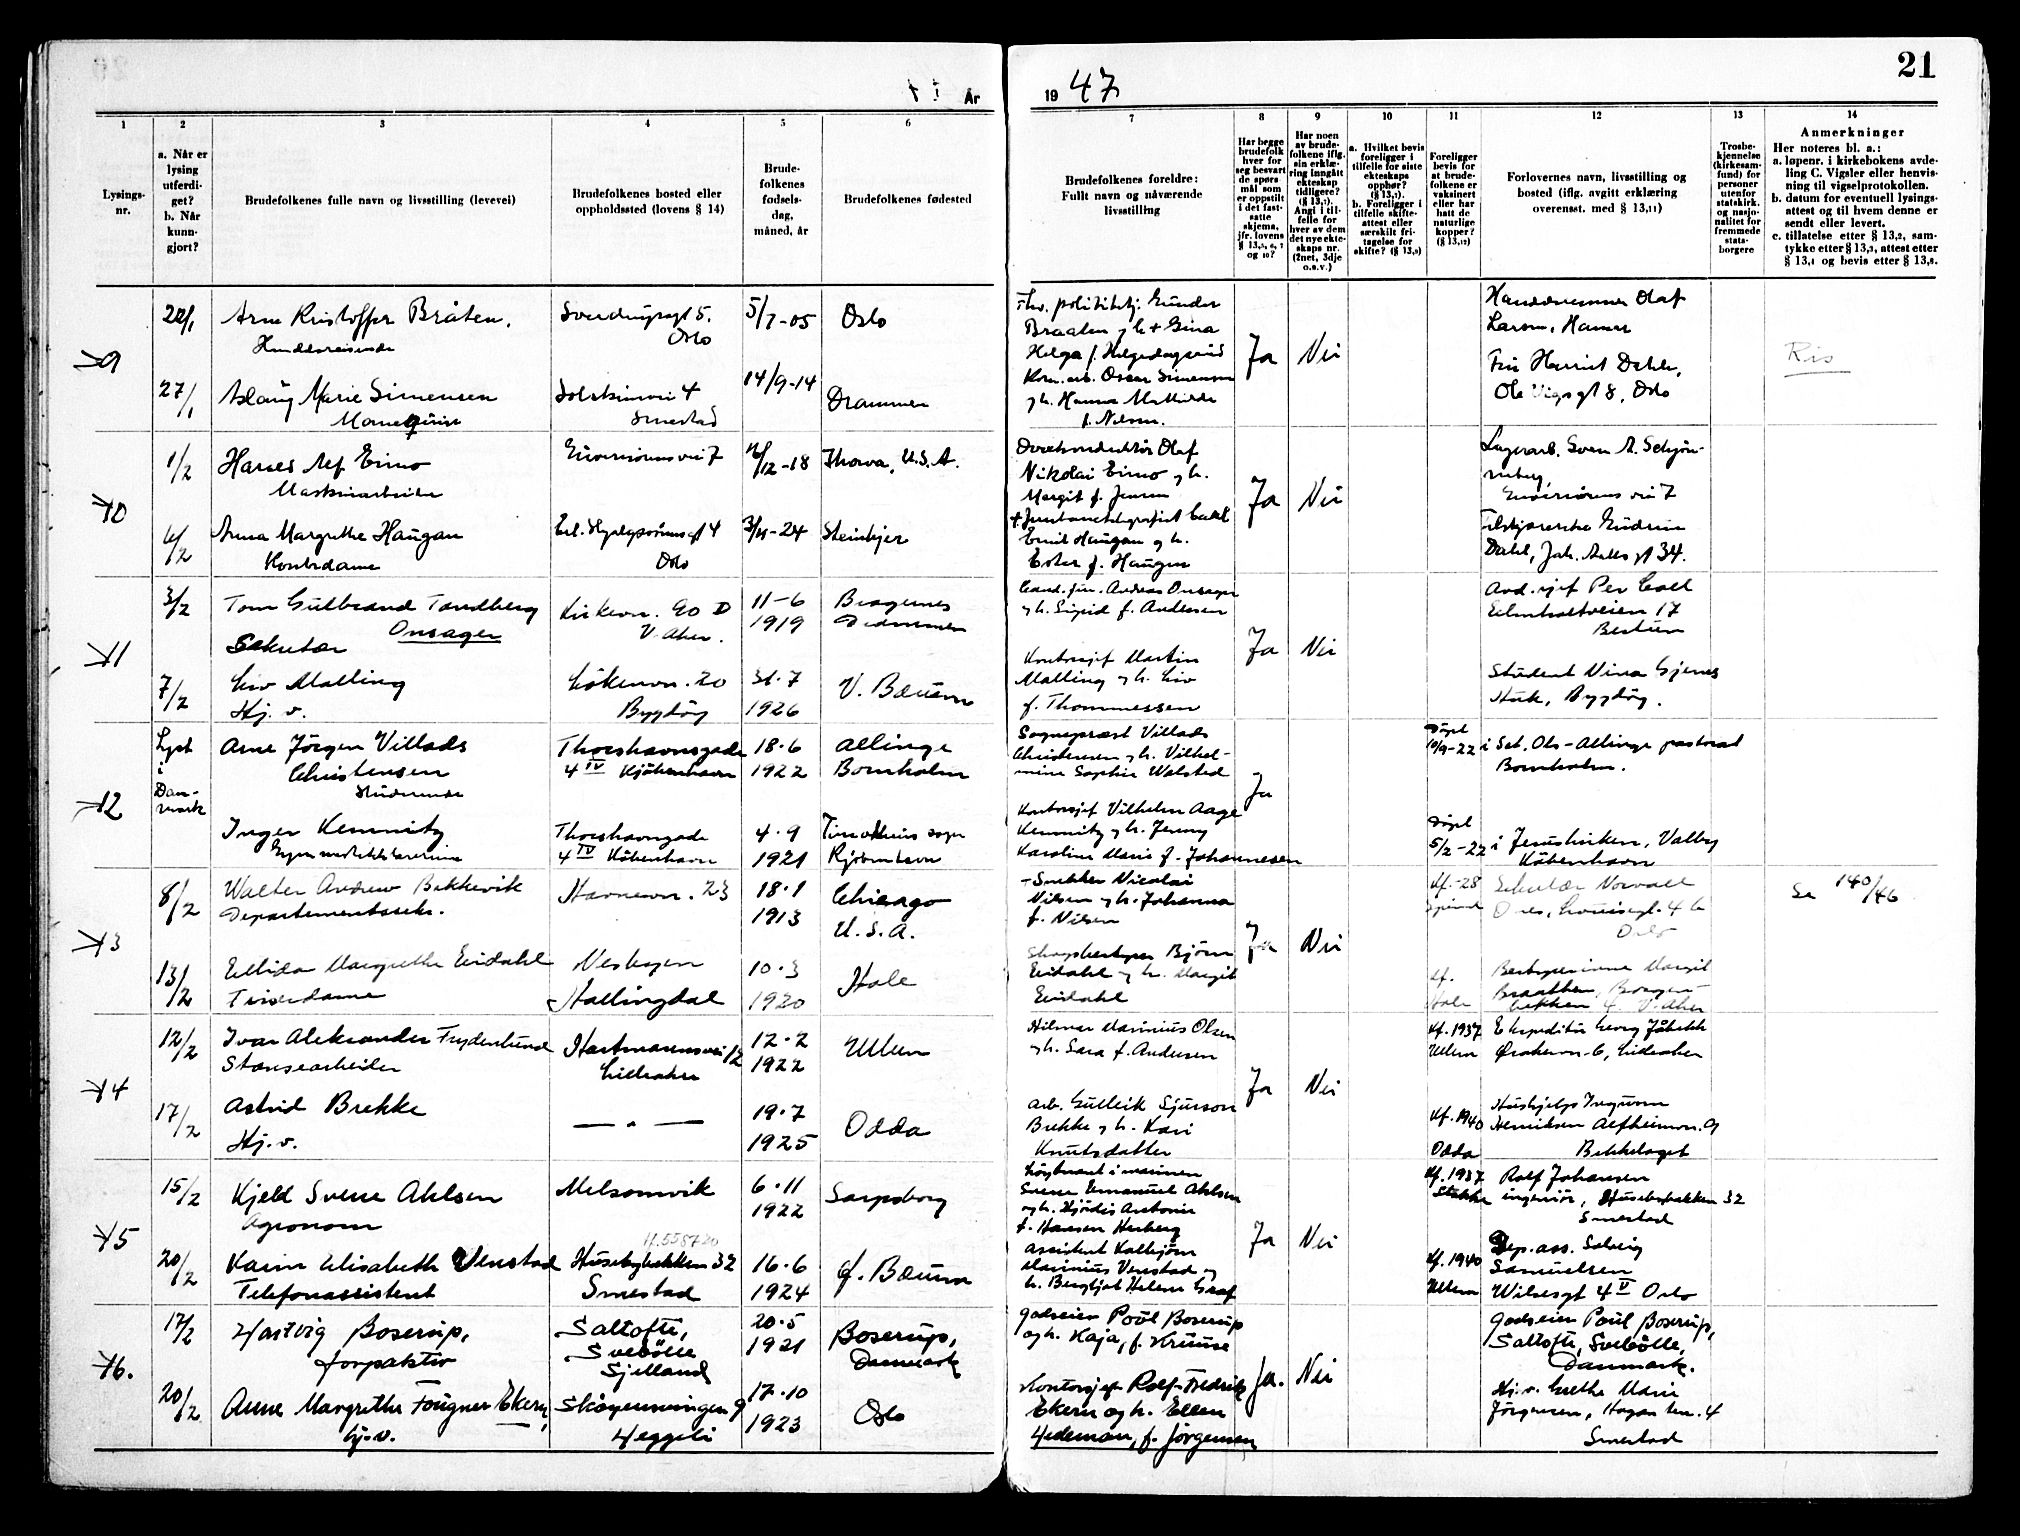 21
År
19 47
1
2
3
4
5
6
7
8
9
10
11
12
13
14
Lysings-
nr.
a. Når er
lysing
utferdi-
get?
b. Når
kunn-
gjort?
Brudefolkenes fulle navn og livsstilling (levevei)
Brudefolkenes bosted eller
oppholdssted (lovens § 14)
Brude-
folkenes
fødsels-
dag,
måned, år
Brudefolkenes fødested
Brudefolkenes foreldre:
Fullt navn og nåværende
livsstilling
Har begge
brudefolk
hver for
seg besvart
de spørs
mål som
er oppstilt
i det fast-
satte
skjema,
jfr. lovens
§ 13,5, 6, 7
og 10?
Har noen
av brude-
folkene iflg.
sin erklæ-
ring inngått
ekteskap
tidligere?
(§ 13,7).
Angi i til-
felle for
hver av dem
det nye ekte-
skaps nr.
(2net, 3dje
o.s.v.)
a. Hvilket bevis
foreligger i
tilfelle for siste
ekteskaps
opphør?
(§ 13,7).
b. Foreligger i
tilfelle skifte-
attest eller
særskilt fri-
tagelse for
skifte? (§ 13,8)
Foreligger
bevis for
at brude-
folkene er
vaksinert
eller har
hatt de
naturlige
kopper?
(§ 13,12)
Forlovernes navn, livsstilling og
bosted (iflg. avgitt erklæring
overensst. med § 13,11)
Trosbe-
kjennelse
(kirkesam-
fund) for
personer
utenfor
statskirk.
og nasjo-
nalitet for
fremmede
stats-
borgere
Anmerkninger
Her noteres bl. a.:
a. løpenr. i kirkebokens avde-
ling C. Vigsler eller henvis-
ning til vigselprotokollen.
b. datum for eventuell lysings-
attest og til hvem denne er
sendt eller levert.
c. tillatelse etter § 13,2, sam-
tykke etter § 13,3, attest etter
§ 13,4 og bevis etter § 13,8.
9
Arne Kristoffer Bråten.
Oslo
5/7-05
Oslo
Braaten
Gina
Helga f.
Ja
Nei
Olaf
Larsen, Hamar
Ris
27/1
Aslaug Marie Simensen
4
Smestad
14/9-14
Drammen
Oscar Simensen
Hanna Mathilde
f. Nilsen.
Fru Harriet Dahle,
8, Oslo
10
1/2
Eimo
Maskinarbeider
7
12-18
U.S.A.
Olaf
Nikolai Eimo og h.
Margit f. Jensen
Ja
Nei
Lagerarb. Sven
6/2
Anna Margrethe Haugan
Kontordame
4
Oslo
-24
Steinkjer
Emil Haugan og h.
Ester f. Haugen
Gudrun
Dahl, gt 34.
11
3/2
Tom Gulbrand Tandberg
Onsager
Sekretær
Kirkevn. 90 D
V. Aker.
11-6
1919
Bragernes
Drammen
Cand. jur. Andreas Onsager
og h. Sigrid f. Andersen
Ja
Nei
Avd. sjef Per
17
Bestum
7/2
Liv Malling
Hj. v.
Løkenvn. 20
Bygdøy
31. 7
1926
V. Bærum
Kontorsjef Martin
Malling og h. Liv
f. Thommessen
Student Nina Gjenes
Huk, Bygdøy.
12
Lyst
i
Dan-
mark
Arne Jörgen Villads
Christensen
Studerende
Thorshavnsgade
4 IV Kjöbenhavn
18.6
1922
Allinge
Bornholm
Sogneprest Villads
Christensen og h. Vilhel-
mine Sophie Walsted
Ja
Døpt
10/9-22 i Sct. Ols-Allinge pastorat
Bornholm.
Inger Kemnitz
Thorshavnsgade
4 IV København
4.9
1921
Timotheus sogn
Kjöbenhavn
Kontorsjef Vilhelm Aage
Kemnitz og h. Jenny
Karoline Marie f. Johannesen
Døpt
5/2-22 i Jesuskirken, Valby
København
13
8/2
Walter Andrew Bekkevik
Departementssekr.
Havnevn. 23
18.1
1913
Chicago
U.S.A.
Snekker Nicolai
Nilsen og h. Johanna
f. Nilsen
Ja
Nei
kf.-28
Sekretær
Oslo
Se 140/46
13/2
Ellida Margrethe Eidahl
Nesbyen
Hallingdal
10.3
1920
Hole
Bjørn
Eidahl og h. Margit
Eidahl
kf.
Hole
Bestyrerinne Margit
Braathen,
4 V. Aker
14
12/2
Ivar Aleksander Frydenlund
Stansearbeider
Hartmannsvei 12
Lilleaker
12.2
1922
Ullern
Hilmar Marinius Olsen
og h. Sara f. Andersen
Ja
Nei
kf. 1937
Ullern
Ekspeditør Georg
6, Lilleaker
17/2
Astrid Brekke
Hj. v.
— " —
19.7
1925
Odda
Arb. Gulleik Sjursson
Brekke og h. Kari
Knutsdatter
kf. 1940
Odda
Hushjelp Ingunn
Henriksen 9
Bekkelaget
15
15/2
Kjeld Svene Ahlsen
Agronom
Melsomvik
6.11
1922
Sarpsborg
i marinen
Svene Emanuel Ahlsen
og h. Hjördis Antonie
f. Hansen Herberg
Ja
Nei
kf. 1937
Stokke
Rolf Johansen
ingeniør, Husebybakken 32
Smestad
20/2
Karin Elisabeth Venstad
Telefonassistent
H.558720
Husebybakken 32
Smestad
16.6
1924
Ø. Bærum
Assistent Kolbjørn
Marinius Venstad og
h. Bergljot Helene Graf
kf. 1940
Ullern
Dep. ass. Solveig
Samuelsen
Wilsesgt 4 V Oslo
16.
17/2
Hartvig Boserup,
forpakter
Saltofte,
Svebölle
Sjelland
20.5
1921
Boserup,
Danmark
Godseier Poul Boserup
og h. Kaja, f. Kruuse
Ja.
Nei
Godseier Poul Boserup,
Saltofte, Svebölle,
Danmark.
20/2
Anne Margrethe Fougner Ekern,
hj. v.
Skøyensvingen 9
Heggeli
17.10
1923
Oslo
Kontorsjef Rolf Fredrik
Ekern og h. Ellen
Hedeman, f. Jørgensen
Hj. v. Grethe Marie
Jörgensen, 4
Smestad